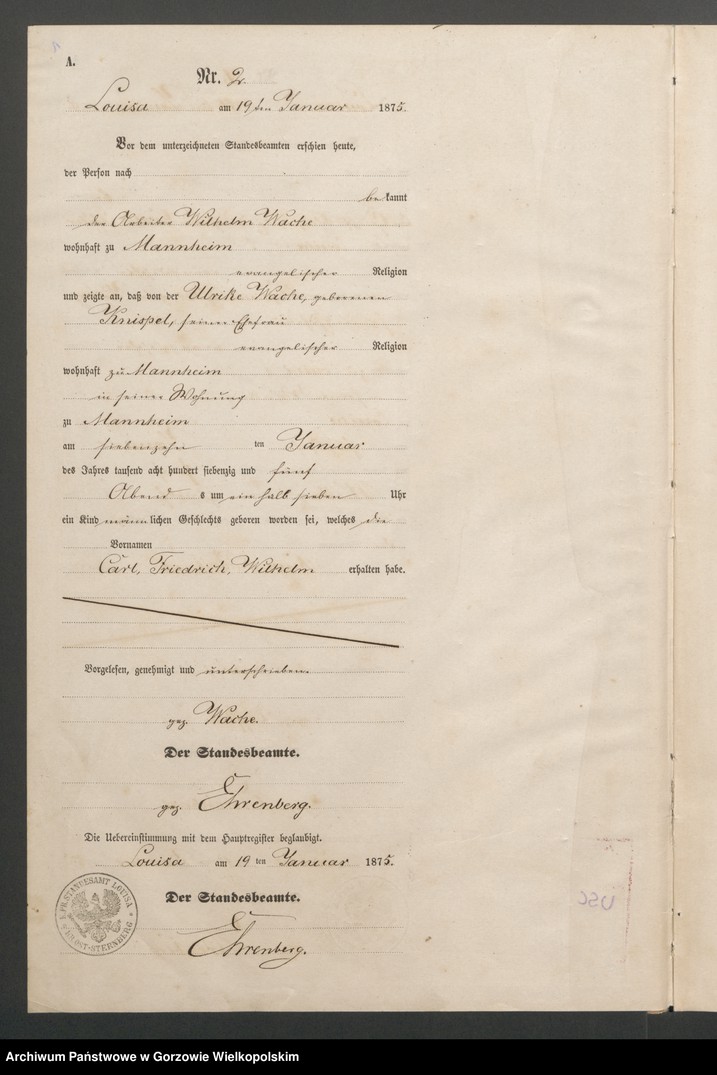 A.
Nr. 2.
Louisa am 19ten Januar 1875.
Vor dem unterzeichneten Standesbeamten erschien heute,
der Person nach
bekannt
der Arbeiter Wilhelm Wache
wohnhaft zu Mannheim
evangelischer Religion
und zeigte an, daß von der Ulrike Wache, geborenen
Knispel, seiner Ehefrau
evangelischer Religion
wohnhaft zu Mannheim
in seiner Wohnung
zu Mannheim
am siebenzehn ten Januar
des Jahres tausend acht hundert siebenzig und fünf
Abend s um ein halb sieben Uhr
ein Kind männlichen Geschlechts geboren worden sei, welches die
Vornamen
Carl, Friedrich, Wilhelm erhalten habe.
Vorgelesen, genehmigt und unterschrieben.
gez. Wache.
Der Standesbeamte.
gez. Ehrenberg.
Die Uebereinstimmung mit dem Hauptregister beglaubigt.
Louisa am 19 ten Januar 1875.
Der Standesbeamte.
Ehrenberg.
K. PR. STANDESAMT LOUISA
KR. OST-STERNBERG
USC
Archiwum Państwowe w Gorzowie Wielkopolskim